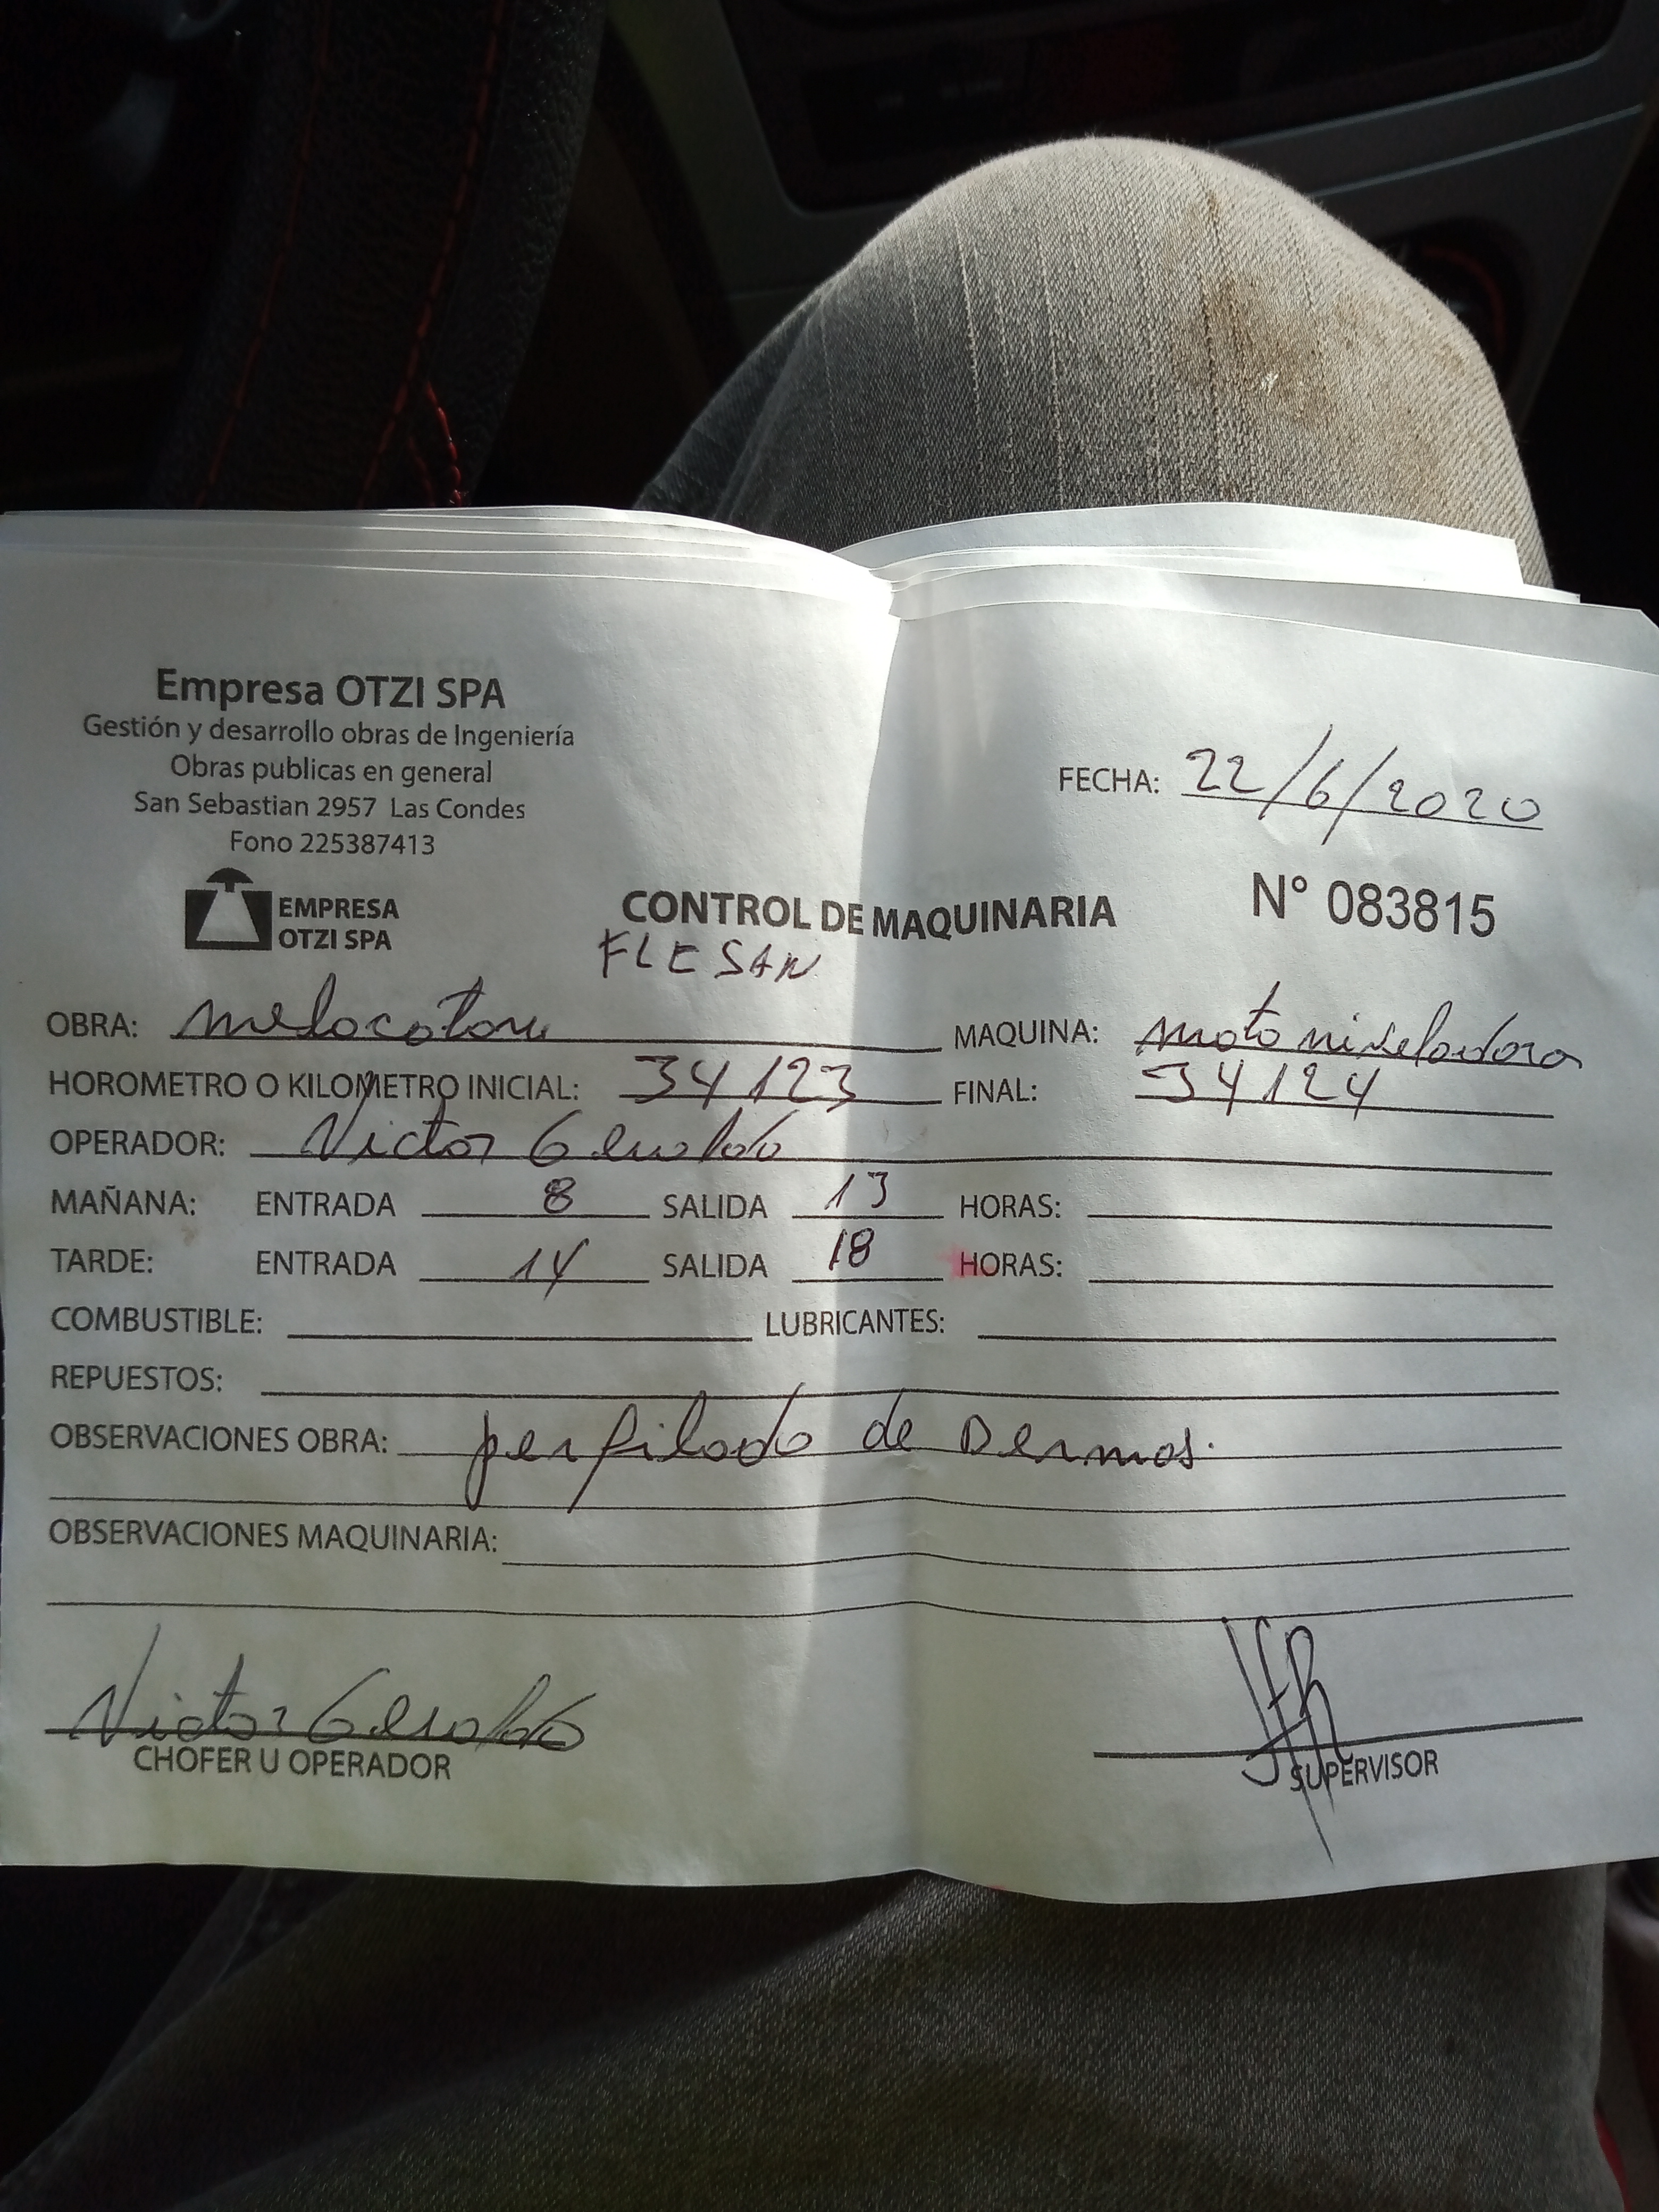 Empresa OTZI SPA
Gestión y desarrollo obras de Ingeniería
Obras publicas en general
San Sebastian 2957 Las Condes
Fono 225387413
EMPRESA
OTZI SPA
FECHA: 22/6/2020
CONTROL DE MAQUINARIA
N° 083815
FLESAN
OBRA: melocoton MAQUINA: motoniveladora
HOROMETRO O KILOMETRO INICIAL: 34123 FINAL: 34124
OPERADOR: Victor
MAÑANA: ENTRADA 8 SALIDA 13 HORAS:
TARDE: ENTRADA 14 SALIDA 18 HORAS:
COMBUSTIBLE: LUBRICANTES:
REPUESTOS:
OBSERVACIONES OBRA: perfilado de Dermos.
OBSERVACIONES MAQUINARIA:
Victor
CHOFER U OPERADOR
SUPERVISOR